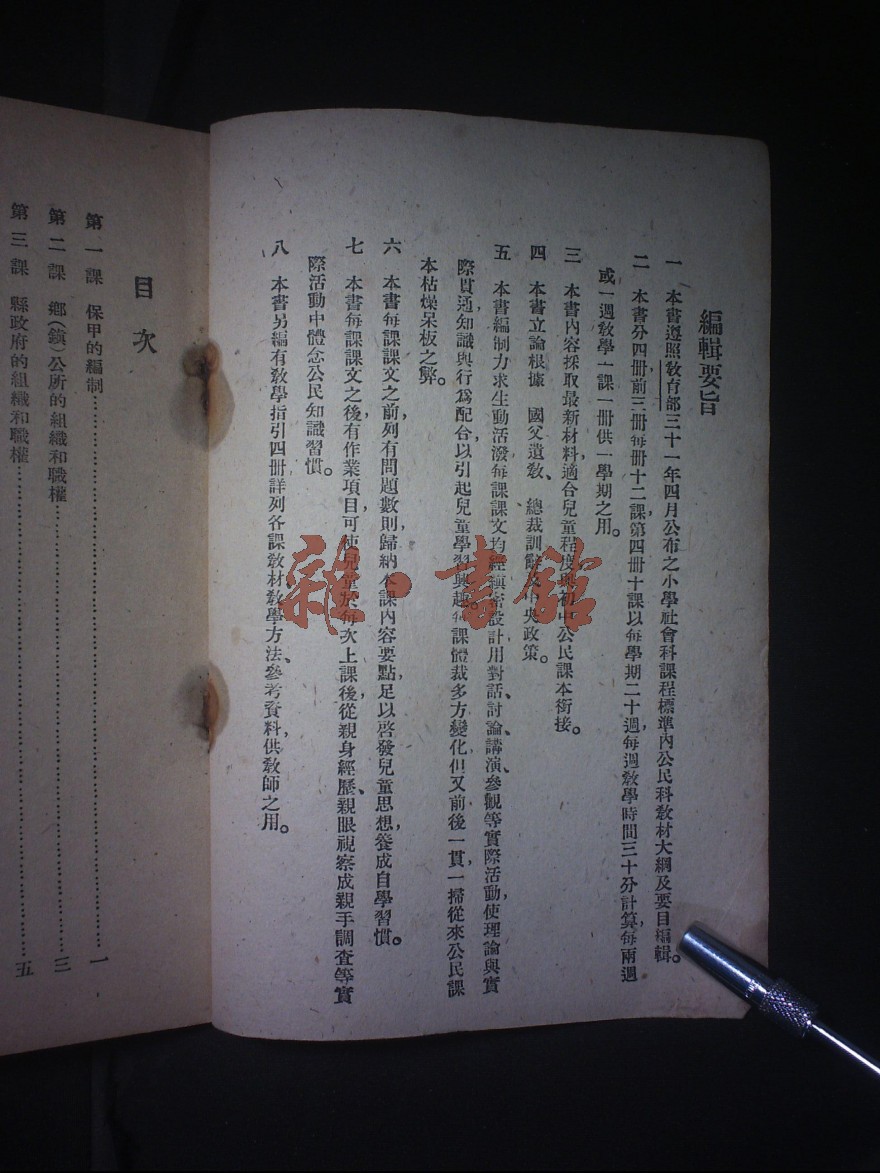 編輯要旨
一 本書遵照教育部三十一年四月公布之小學社會科課程標準內公民科教材大綱及要目編輯。
二 本書分四冊，前三冊每冊十二課，第四冊十課，以每學期二十週，每週教學時間三十分計算，每兩週
或一週教學一課，一冊供一學期之用。
三 本書內容採取最新材料，適合兒童程度，與初中公民課本銜接。
四 本書立論根據 國父遺教、總裁訓及中央政策。
五 本書編制力求生動活潑，每課課文均經縝密設計，用對話、討論、講演、參觀等實際活動，使理論與實
際貫通，知識與行爲配合，以引起兒童學習興趣。每課體裁多方變化，但又前後一貫，一掃從來公民課
本枯燥呆板之弊。
六 本書每課課文之前，列有問題數則，歸納本課內容要點，足以啓發兒童思想，養成自學習慣。
七 本書每課課文之後有作業項目，可使兒童於每次上課後，從親身經歷、親眼視察或親手調查等實
際活動中體念公民知識習慣。
八 本書另編有教學指引四冊，詳列各課教材、教學方法、參考資料，供教師之用。
目次
第一課 保甲的編制……一
第二課 鄉(鎮)公所的組織和職權……三
第三課 縣政府的組織和職權……五
雜·書館